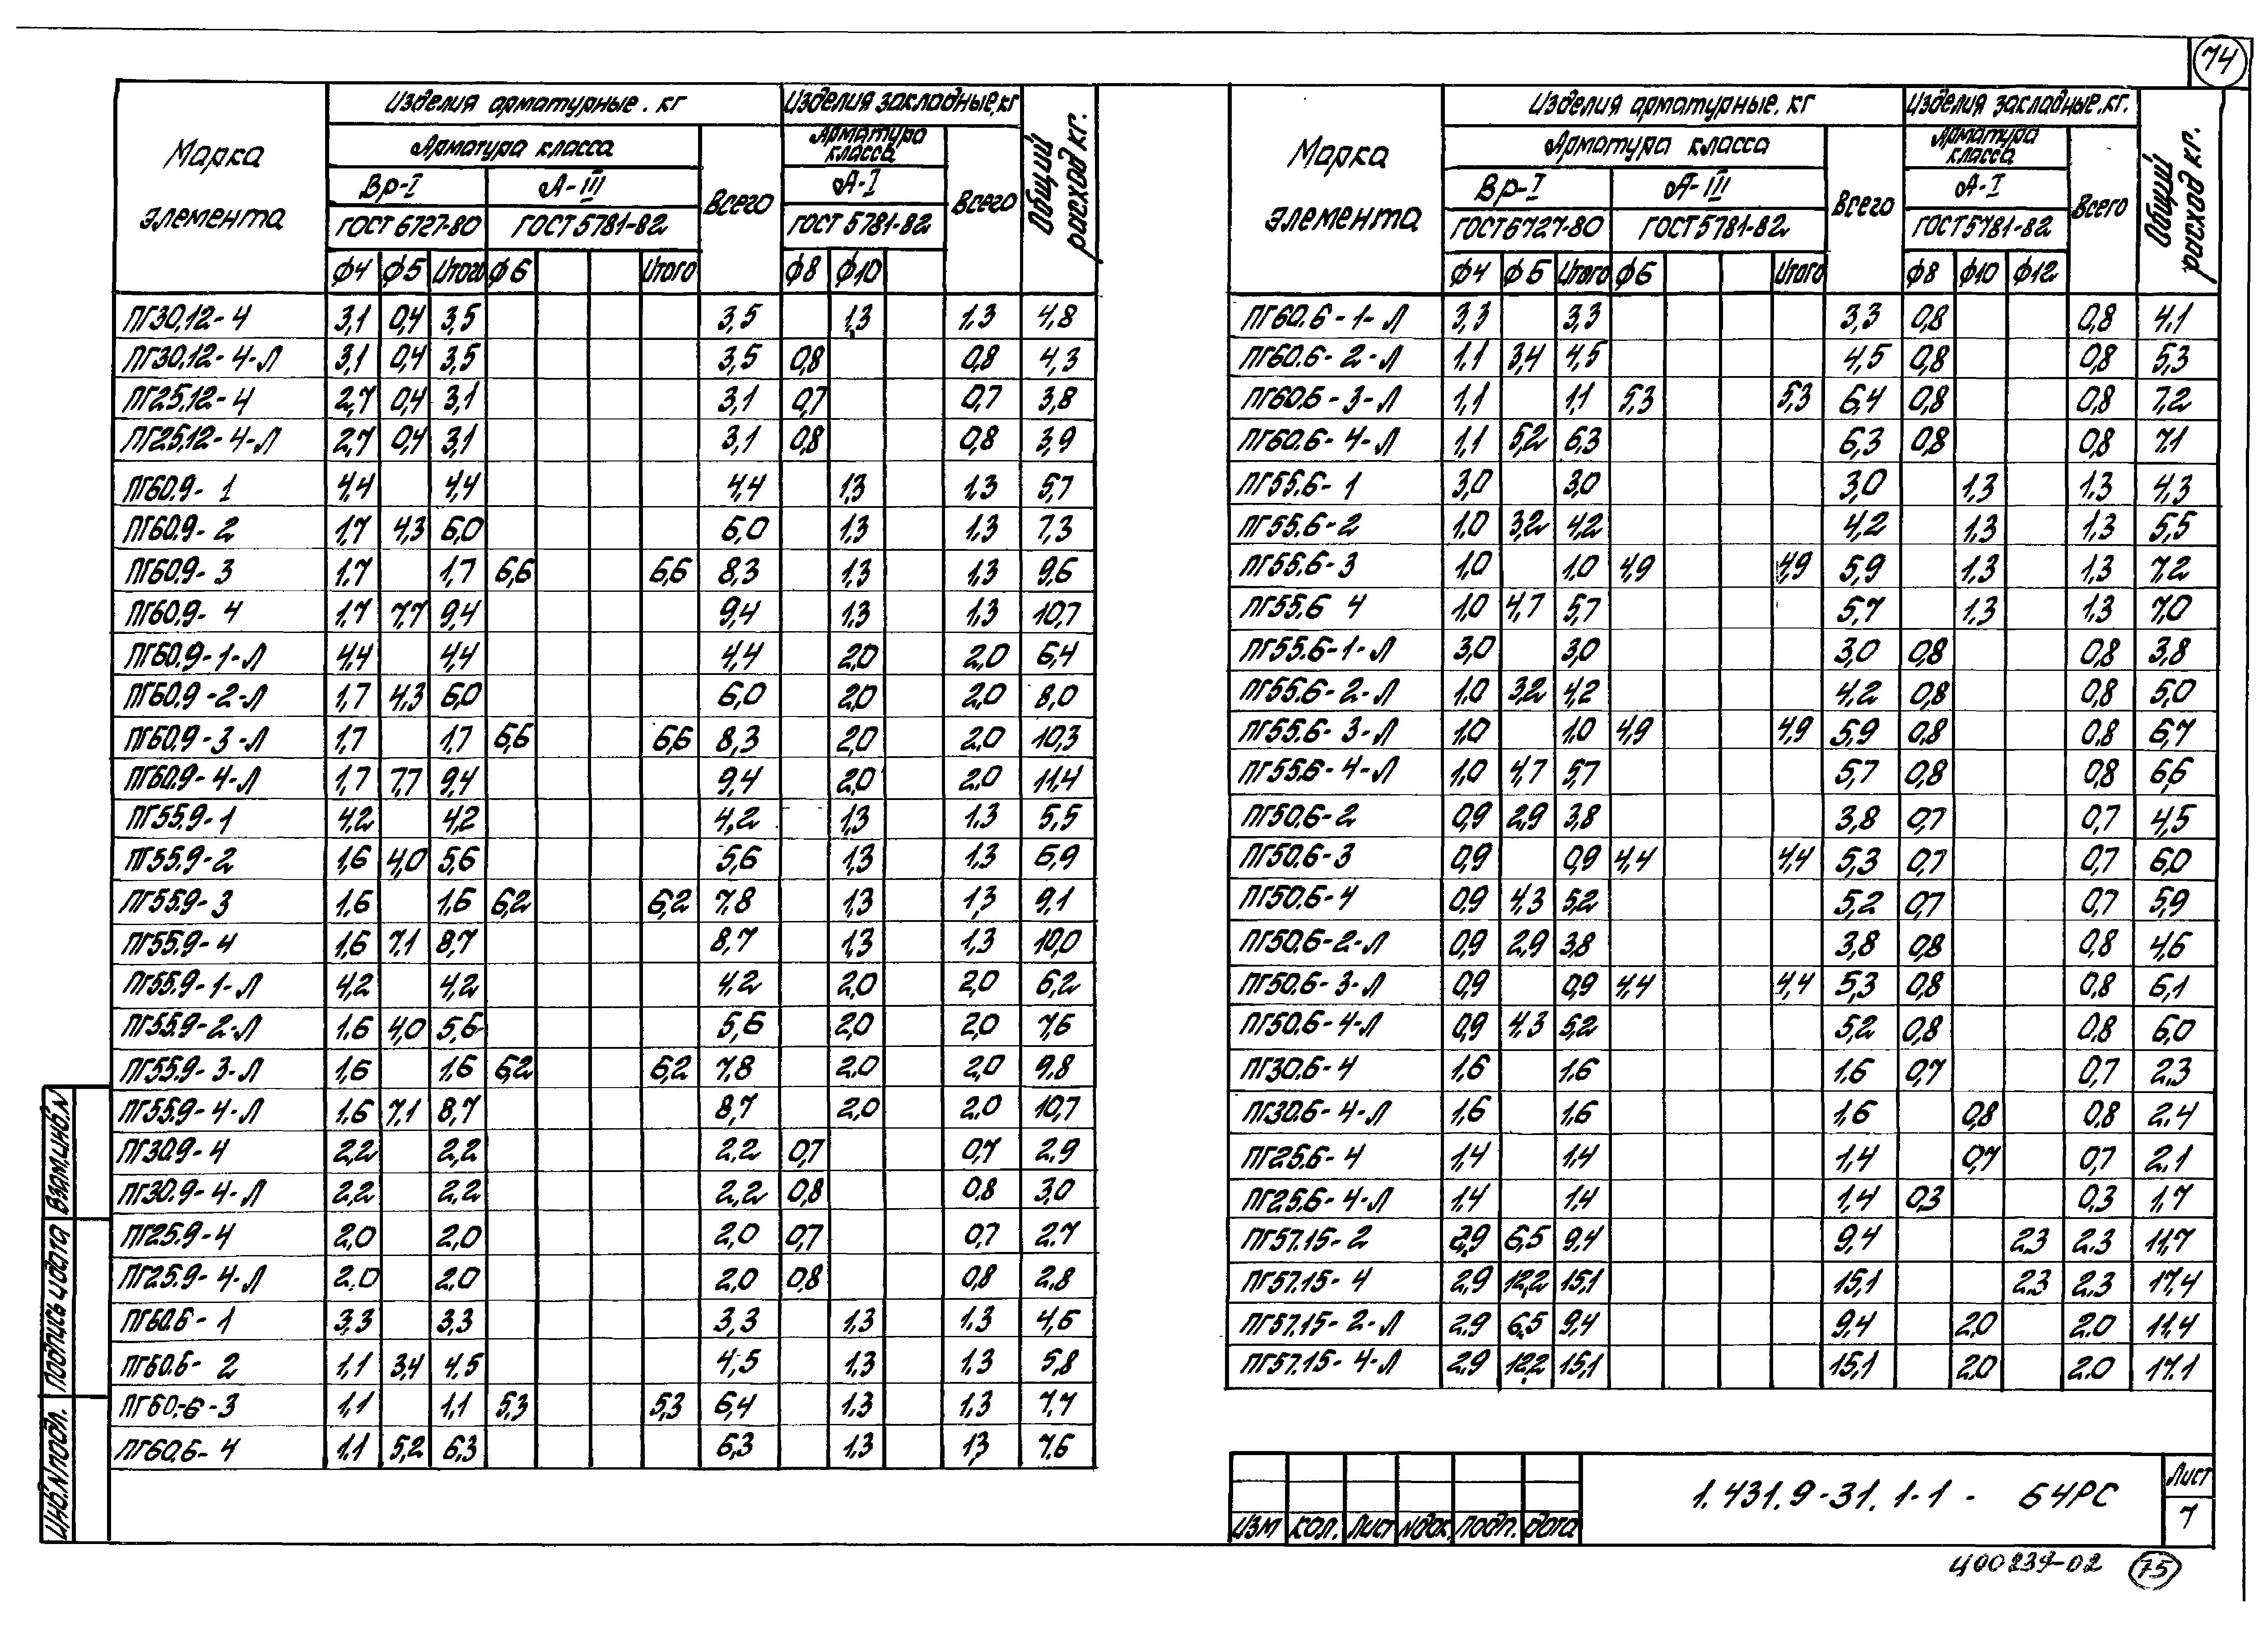 74
Марка элемента
Изделия арматурные. кг
Изделия закладные, кг
Общий расход кг.
Арматура класса
Всего
Арматура класса
Всего
Вр-I
А-III
А-I
ГОСТ 6727-80
ГОСТ 5781-82
ГОСТ 5781-82
ф4 ф5 Итого ф6 Итого ф8 ф10
ПГ30.12-4 3,1 0,4 3,5 3,5 1,3 1,3 4,8
ПГ30.12-4-Л 3,1 0,4 3,5 3,5 0,8 0,8 4,3
ПГ25.12-4 2,7 0,4 3,1 3,1 0,7 0,7 3,8
ПГ25.12-4-Л 2,7 0,4 3,1 3,1 0,8 0,8 3,9
ПГ60.9-1 4,4 4,4 4,4 1,3 1,3 5,7
ПГ60.9-2 1,7 4,3 6,0 6,0 1,3 1,3 7,3
ПГ60.9-3 1,7 1,7 6,6 6,6 8,3 1,3 1,3 9,6
ПГ60.9-4 1,7 7,7 9,4 9,4 1,3 1,3 10,7
ПГ60.9-1-Л 4,4 4,4 4,4 2,0 2,0 6,4
ПГ60.9-2-Л 1,7 4,3 6,0 6,0 2,0 2,0 8,0
ПГ60.9-3-Л 1,7 1,7 6,6 6,6 8,3 2,0 2,0 10,3
ПГ60.9-4-Л 1,7 7,7 9,4 9,4 2,0 2,0 11,4
ПГ55.9-1 4,2 4,2 4,2 1,3 1.3 5,5
ПГ55.9-2 1,6 4,0 5,6 5,6 1,3 1.3 6,9
ПГ55.9-3 1,6 1,6 6,2 6,2 7,8 1,3 1,3 9,1
ПГ55.9-4 1,6 7,1 8,7 8,7 1,3 1,3 10,0
ПГ55.9-1-Л 4,2 4,2 4,2 2,0 2,0 6,2
ПГ55.9-2-Л 1.6 4,0 5,6 5,6 2,0 2,0 7,6
ПГ55.9-3-Л 1,6 1,6 6,2 6,2 7,8 2,0 2,0 9,8
ПГ55.9-4-Л 1,6 7,1 8,7 8,7 2,0 2.0 10,7
ПГ30.9-4 2,2 2,2 2,2 0,7 0,7 2,9
ПГ30.9-4-Л 2,2 2,2 2,2 0,8 0.8 3,0
ПГ25.9-4 2,0 2,0 2,0 0,7 0,7 2.7
ПГ25.9-4-Л 2,0 2,0 2,0 0,8 0,8 2,8
ПГ60.6-1 3,3 3,3 3,3 1.3 1.3 4,6
ПГ60.6-2 1,1 3,4 4,5 4,5 1.3 1.3 5,8
ПГ60.-6-3 1,1 1,1 5,3 5,3 6,4 1.3 1.3 7,7
ПГ60.6-4 1,1 5,2 6,3 6,3 1.3 13 7,6
Марка элемента
Изделия арматурные. кг
Изделия закладные. кг.
Общий расход кг.
Арматура класса
Всего
Арматура класса
Всего
Вр-I
А-III
А-I
ГОСТ 6727-80
ГОСТ 5781-82
ГОСТ 5781-82
ф4 ф5 Итого ф6 Итого ф8 ф10 ф12
ПГ60.6-1-Л 3,3 3,3 3,3 0,8 0,8 4,1
ПГ60.6-2-Л 1.1 3,4 4,5 4,5 0,8 0,8 5,3
ПГ60.6-3-Л 1,1 1,1 5,3 5,3 6,4 0,8 0,8 7,2
ПГ60.6-4-Л 1,1 5,2 6,3 6,3 0,8 0,8 7,1
ПГ55.6-1 3,0 3,0 3,0 1,3 1,3 4,3
ПГ55.6-2 1,0 3,2 4,2 4,2 1,3 1,3 5,5
ПГ55.6-3 1,0 1,0 4,9 4,9 5,9 1,3 1,3 7,2
ПГ55.6 4 1,0 4,7 5,7 5,7 1,3 1,3 7,0
ПГ55.6-1-Л 3,0 3,0 3,0 0,8 0,8 3,8
ПГ55.6-2-Л 1,0 3,2 4,2 4,2 0,8 0,8 5,0
ПГ55.6-3-Л 1,0 1,0 4,9 4,9 5,9 0,8 0,8 6,7
ПГ55.6-4-Л 1,0 4,7 5,7 5,7 0,8 0,8 6,6
ПГ50.6-2 0,9 2,9 3,8 3,8 0,7 0,7 4,5
ПГ50.6-3 0,9 0,9 4,4 4,4 5,3 0,7 0,7 6,0
ПГ50.6-4 0,9 4,3 5,2 5,2 0,7 0,7 5,9
ПГ50.6-2-Л 0,9 2,9 3,8 3,8 0,8 0,8 4,6
ПГ50.6-3-Л 0,9 0,9 4,4 4,4 5,3 0,8 0,8 6,1
ПГ50.6-4-Л 0,9 4,3 5,2 5,2 0,8 0,8 6,0
ПГ30.6-4 1,6 1,6 1,6 0,7 0,7 2.3
ПГ30.6-4-Л 1,6 1,6 1,6 0,8 0,8 2.4
ПГ25.6-4 1,4 1,4 1,4 0,7 0,7 2.1
ПГ25.6-4-Л 1,4 1,4 1,4 0,3 0,3 1,7
ПГ57.15-2 2,9 6,5 9,4 9,4 2,3 2.3 11,7
ПГ57.15-4 2,9 12,2 15,1 15,1 2.3 2.3 17,4
ПГ57.15-2-Л 2,9 6,5 9,4 9,4 2,0 2.0 11,4
ПГ57.15-4-Л 2,9 12,2 15,1 15,1 2,0 2.0 17.1
Инв.N подл.
Подпись и дата
Взам.инв.N
Изм Кол. Лист Nдок. Подп. Дата
1.431.9-31.1-1 - 64РС
Лист
7
Ц00239-02
75